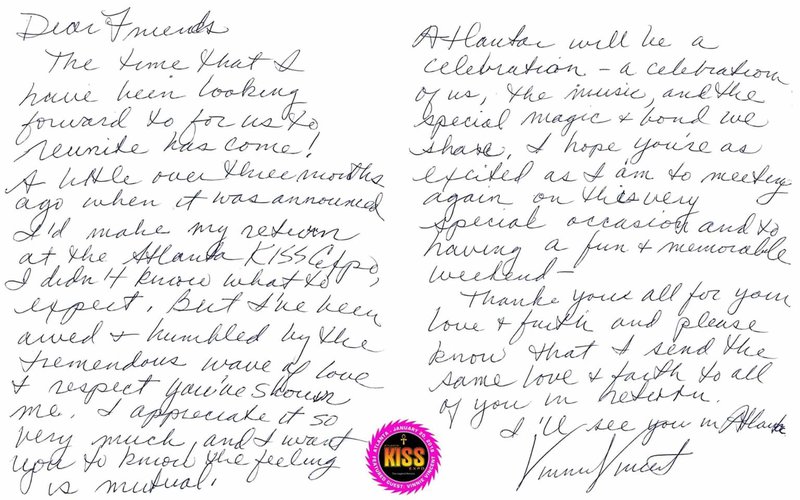 Dear Friends
The time that I
have been looking
forward to for us to
reunite has come!
A little over three months
ago when it was announced
I'd make my return
at the Atlanta KISS Expo,
I didn't know what to
expect. But I've been
awed & humbled by the
tremendous wave of love
& respect you've shown
me. I appreciate it so
very much, and I want
you to know the feeling
is mutual!
Atlanta will be a
celebration – a celebration
of us, the music, and the
special magic & bond we
share. I hope you're as
excited as I am to meeting
again on this very
special occasion and to
having a fun & memorable
weekend –
Thank you all for your
love & faith and please
know that I send the
same love & faith to all
of you in return.
I'll see you in Atlanta
Vinnie Vincent
KISS
EXPO
ATLANTA
FEATURING GUEST: VINNIE VINCENT